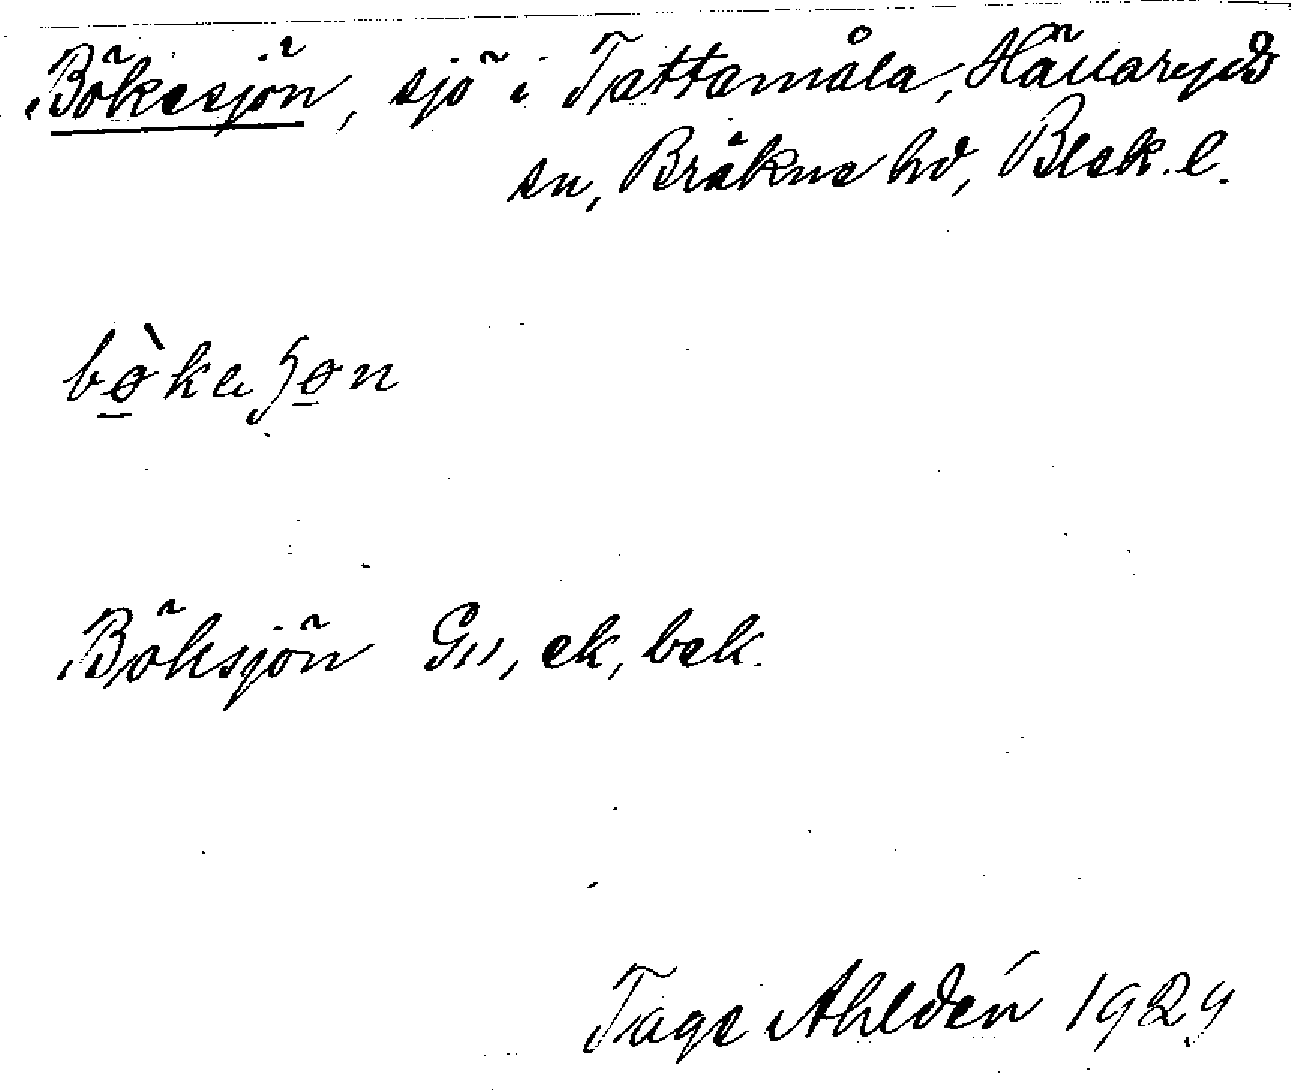 Bökesjön, sjö i Tattamåla, Hällaryds
sn, Bräkne hd, Blek. l.
bø̱̀ka ʃø̱n
Böksjön G11, ek, bek.
Tage Ahldén 1929